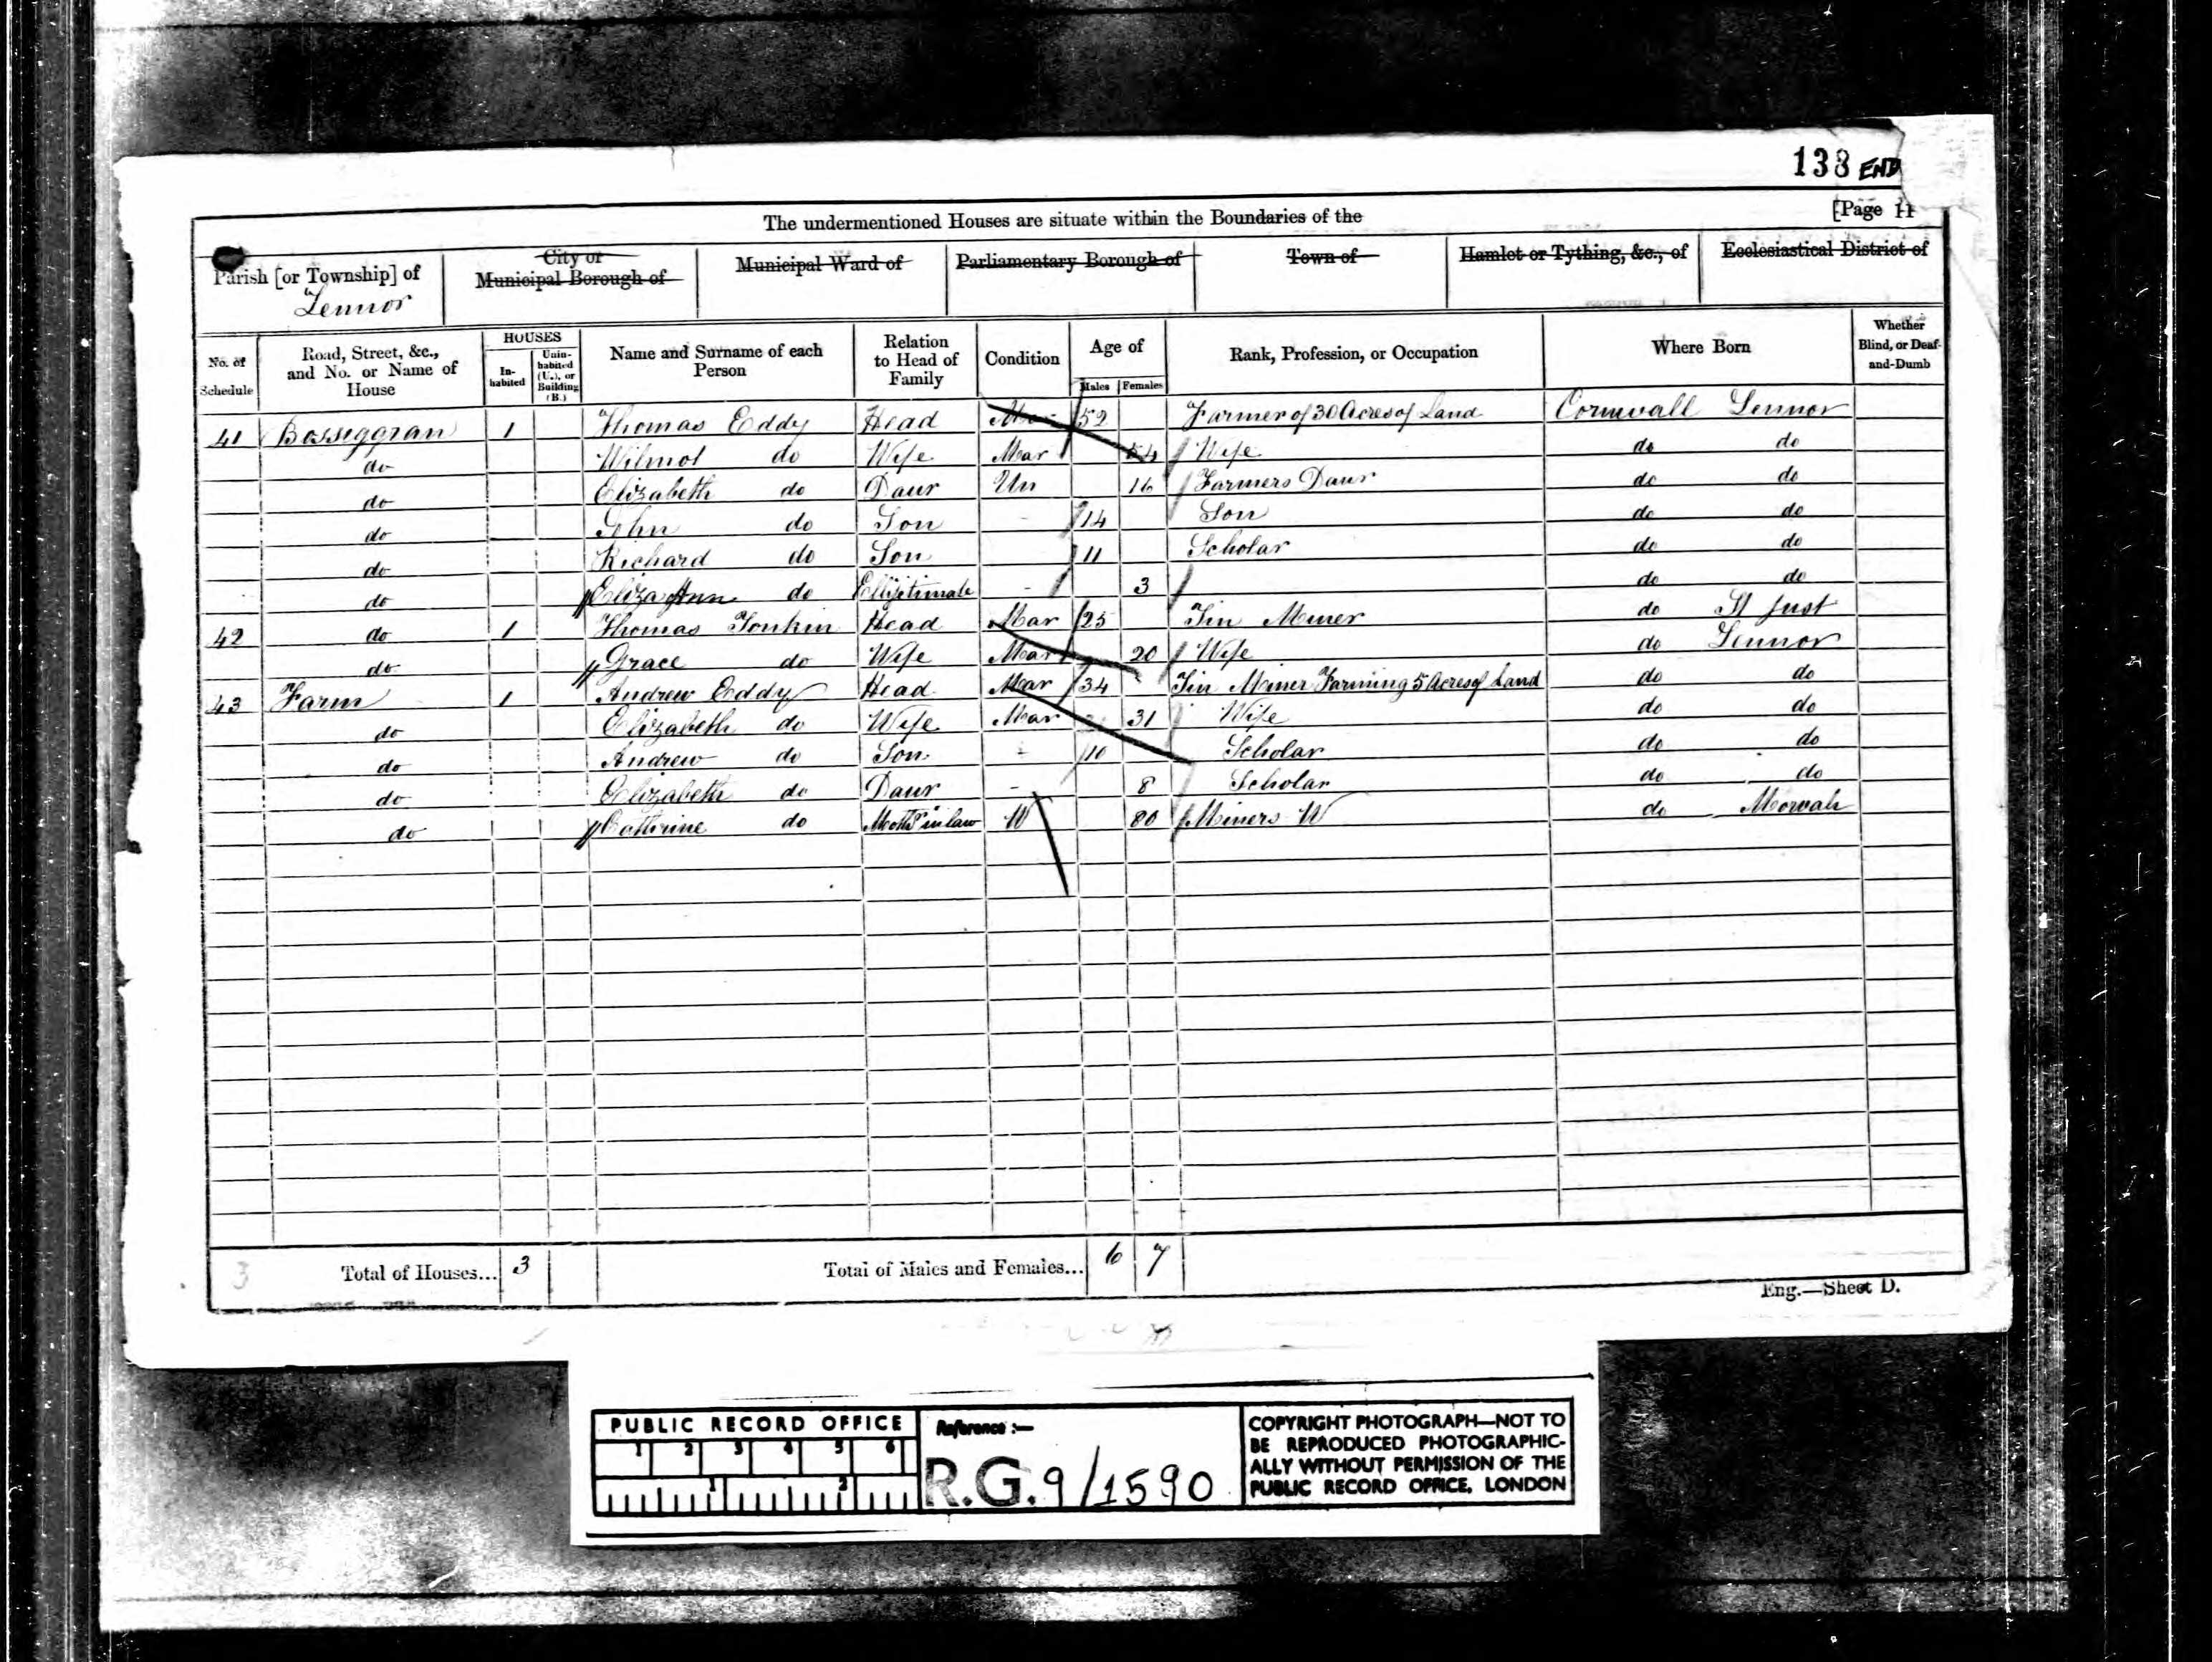 138 END
The undermentioned Houses are situate within the Boundaries of the [Page 11
Parish [or Township] of Zennor
City or Municipal Borough of
Municipal Ward of
Parliamentary Borough of
Town of
Hamlet or Tything, &c., of
Ecclesiastical District of
No. of Schedule
Road, Street, &c., and No. or Name of House
HOUSES
In-habited
Unin-habited (U.), or Building (B.)
Name and Surname of each Person
Relation to Head of Family
Condition
Age of
Males Females
Rank, Profession, or Occupation
Where Born
Whether Blind, or Deaf-and-Dumb
41 Bosseggran 1 Thomas Eddy Head Mar 52 Farmer of 30 Acres of Land Cornwall Zennor
do Wilmot do Wife Mar 54 Wife do do
do Elizabeth do Daur Un 16 Farmers Daur do do
do John do Son - 14 Son do do
do Richard do Son 11 Scholar do do
do Eliza Ann do Ellijitimate - 3 do do
42 do 1 Thomas Tonkin Head Mar 25 Tin Miner do St Just
do Grace do Wife Mar 20 Wife do Zennor
43 Farm 1 Andrew Eddy Head Mar 34 Tin Miner Farming 5 Acres of Land do do
do Elizabeth do Wife Mar 31 Wife do do
do Andrew do Son - 10 Scholar do do
do Elizabeth do Daur - 8 Scholar do do
do Catherine do Mothr in law W 80 Miners W do Morvah
3 Total of Houses... 3 Total of Males and Females... 6 7
Eng.—Sheet D.
PUBLIC RECORD OFFICE
1 2 3 4 5 6
1 2
Reference :—
R.G. 9/1590
COPYRIGHT PHOTOGRAPH—NOT TO
BE REPRODUCED PHOTOGRAPHIC-
ALLY WITHOUT PERMISSION OF THE
PUBLIC RECORD OFFICE, LONDON